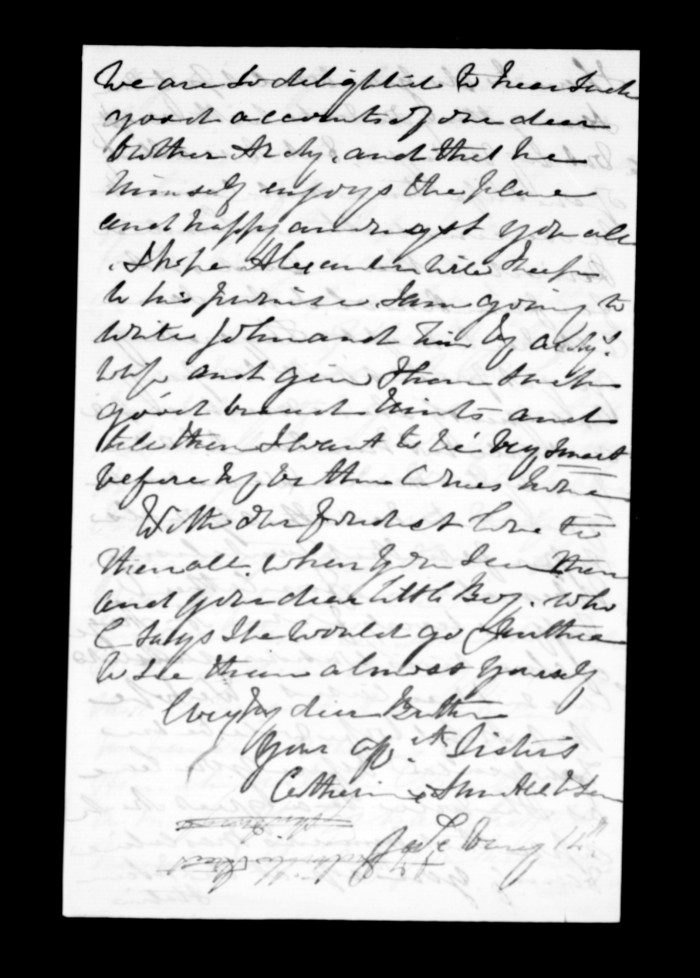 We are so delighted to hear such
good accounts of our dear
brother Archy, and that he
himself enjoys the place
and happy amongst you all
I hope Alexander will keep
to his promise I am going to
write John and him by Archy's
wife and give them such
good broad hints and
tell them I want to be very smart
before my brother comes home
With our fondest love to
them all. when you see them
and your dear little Boy. who
C says She would go further
to see than almost yourself
Ever my dear Brother
Your aff.te Sisters
Catherine &